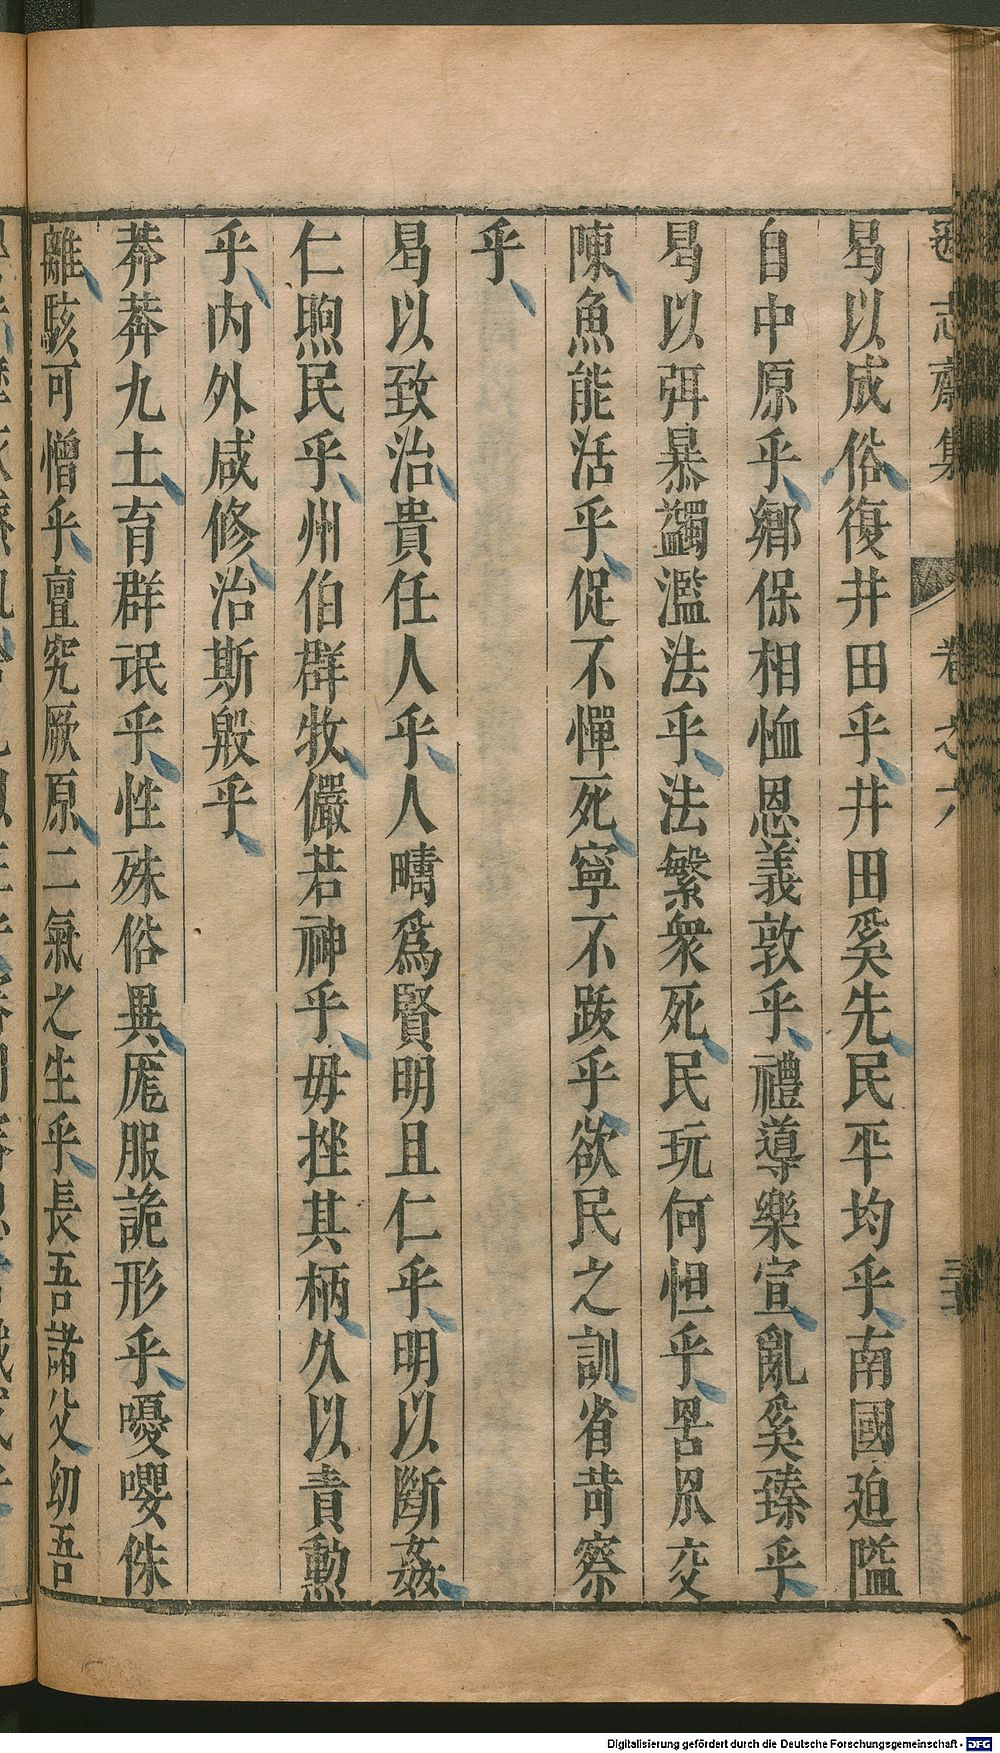 遜志齋集 卷之六 三五
曷以成俗復井田乎井田奚先民平均乎南國迫隘
自中原乎鄉保相恤恩義敦乎禮導樂宣亂奚臻乎
曷以弭暴蠲濫法乎法繁衆死民玩何怛乎罟眾交
陳魚能活乎促不憚死寧不跋乎欲民之訓省苛察
乎
曷以致治貴任人乎人疇爲賢明且仁乎明以斷姦
仁煦民乎州伯群牧儼若神乎毋挫其柄久以責勲
乎内外咸修治斯殷乎
莽莽九土育群氓乎性殊俗異厖服詭形乎嚘嚶侏
離駭可憎乎亶究厥原二氣之生乎長吾諸父幼吾
Digitalisierung gefördert durch die Deutsche Forschungsgemeinschaft - DFG